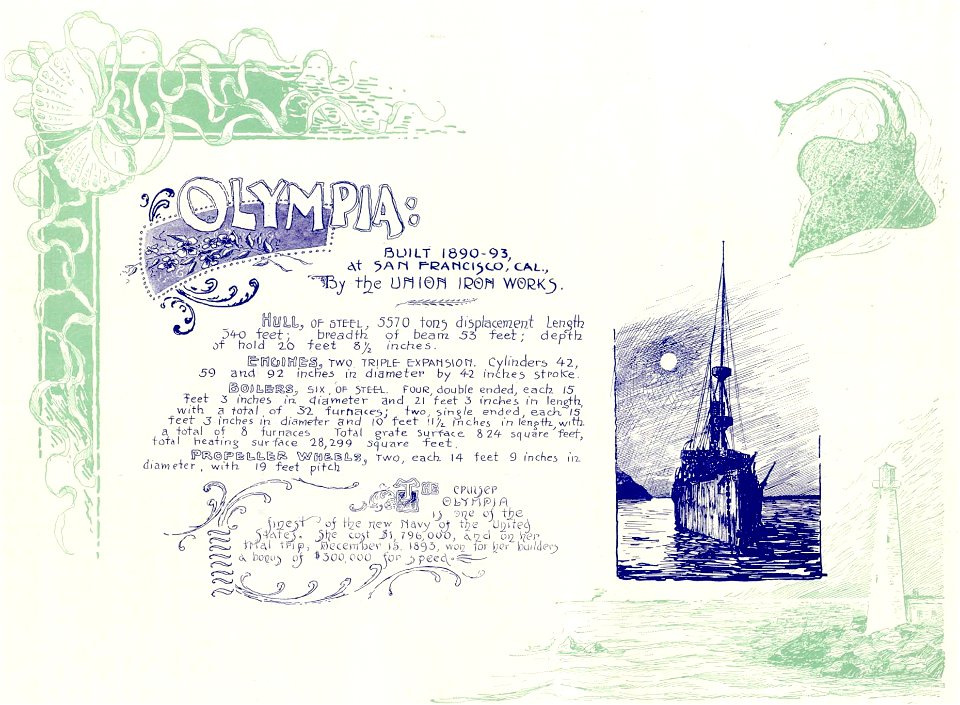 OLYMPIA:
BUILT 1890-93,
at SAN FRANCISCO, CAL.,
By the UNION IRON WORKS.
HULL, OF STEEL, 5570 tons displacement Length
340 feet; breadth of beam 53 feet; depth
of hold 20 feet 8½ inches.
ENGINES, TWO TRIPLE EXPANSION. Cylinders 42,
59 and 92 inches in diameter by 42 inches stroke.
BOILERS, SIX, OF STEEL. FOUR, double ended, each 15
feet 3 inches in diameter and 21 feet 3 inches in length,
with a total of 32 furnaces; two, single ended, each 15
feet 3 inches in diameter and 10 feet 11½ inches in length, with
a total of 8 furnaces Total grate surface 824 square feet,
total heating surface 28,299 square feet.
PROPELLER WHEELS, TWO, each 14 feet 9 inches in
diameter, with 19 feet pitch
THE CRUISER
OLYMPIA
is one of the
finest of the new Navy of the United
States. She cost $1,796,000, and on her
trial trip, December 15, 1893, won for her builders
a bonus of $300,000 for speed.